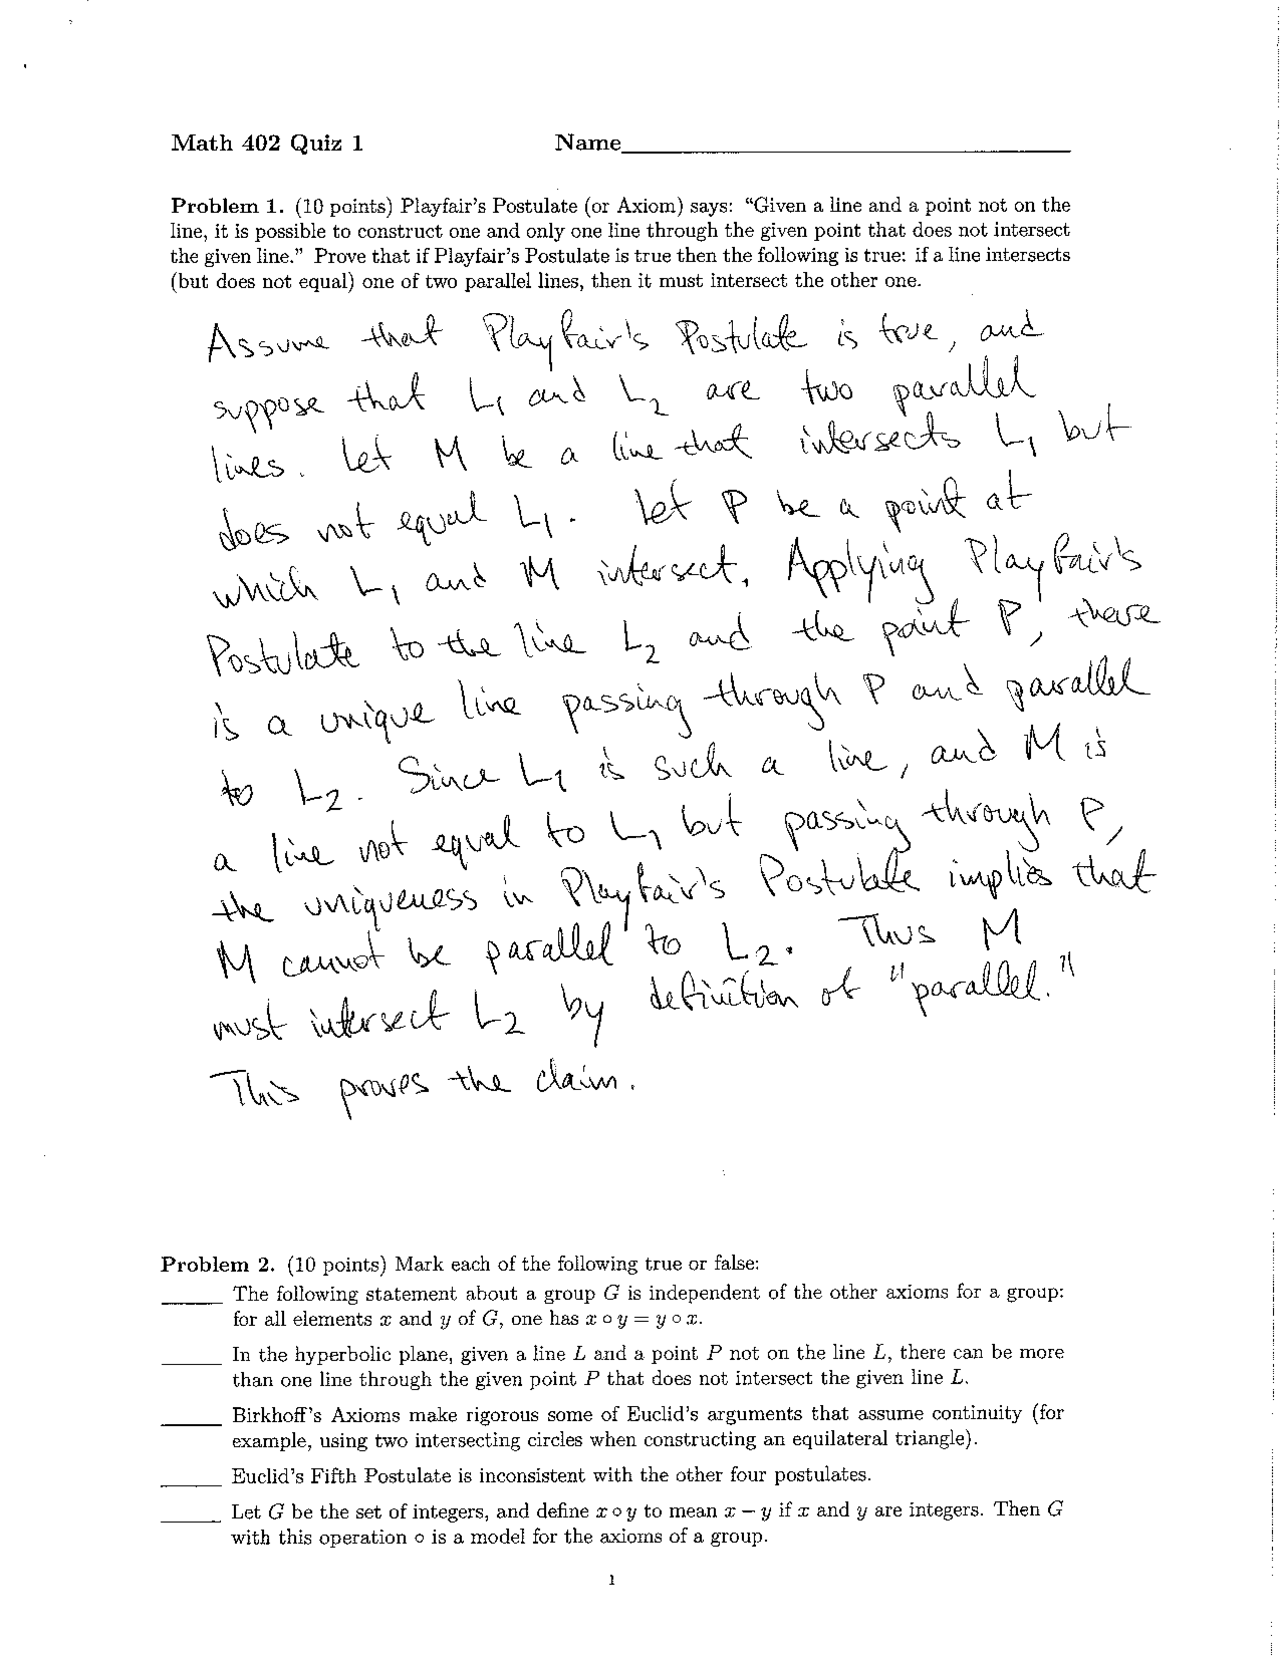 Math 402 Quiz 1 Name
Problem 1. (10 points) Playfair's Postulate (or Axiom) says: “Given a line and a point not on the
line, it is possible to construct one and only one line through the given point that does not intersect
the given line.” Prove that if Playfair's Postulate is true then the following is true: if a line intersects
(but does not equal) one of two parallel lines, then it must intersect the other one.
Assume that Playfair's Postulate is true, and
suppose that L₁ and L₂ are two parallel
lines. Let M be a line that intersects L₁ but
does not equal L₁. Let P be a point at
which L₁ and M intersect. Applying Playfair's
Postulate to the line L₂ and the point P, there
is a unique line passing through P and parallel
to L₂. Since L₁ is such a line, and M is
a line not equal to L₁ but passing through P,
the uniqueness in Playfair's Postulate implies that
M cannot be parallel to L₂. Thus M
must intersect L₂ by definition of "parallel."
This proves the claim.
Problem 2. (10 points) Mark each of the following true or false:
The following statement about a group G is independent of the other axioms for a group:
for all elements x and y of G, one has x ∘ y = y ∘ x.
In the hyperbolic plane, given a line L and a point P not on the line L, there can be more
than one line through the given point P that does not intersect the given line L.
Birkhoff's Axioms make rigorous some of Euclid's arguments that assume continuity (for
example, using two intersecting circles when constructing an equilateral triangle).
Euclid's Fifth Postulate is inconsistent with the other four postulates.
Let G be the set of integers, and define x ∘ y to mean x − y if x and y are integers. Then G
with this operation ∘ is a model for the axioms of a group.
1